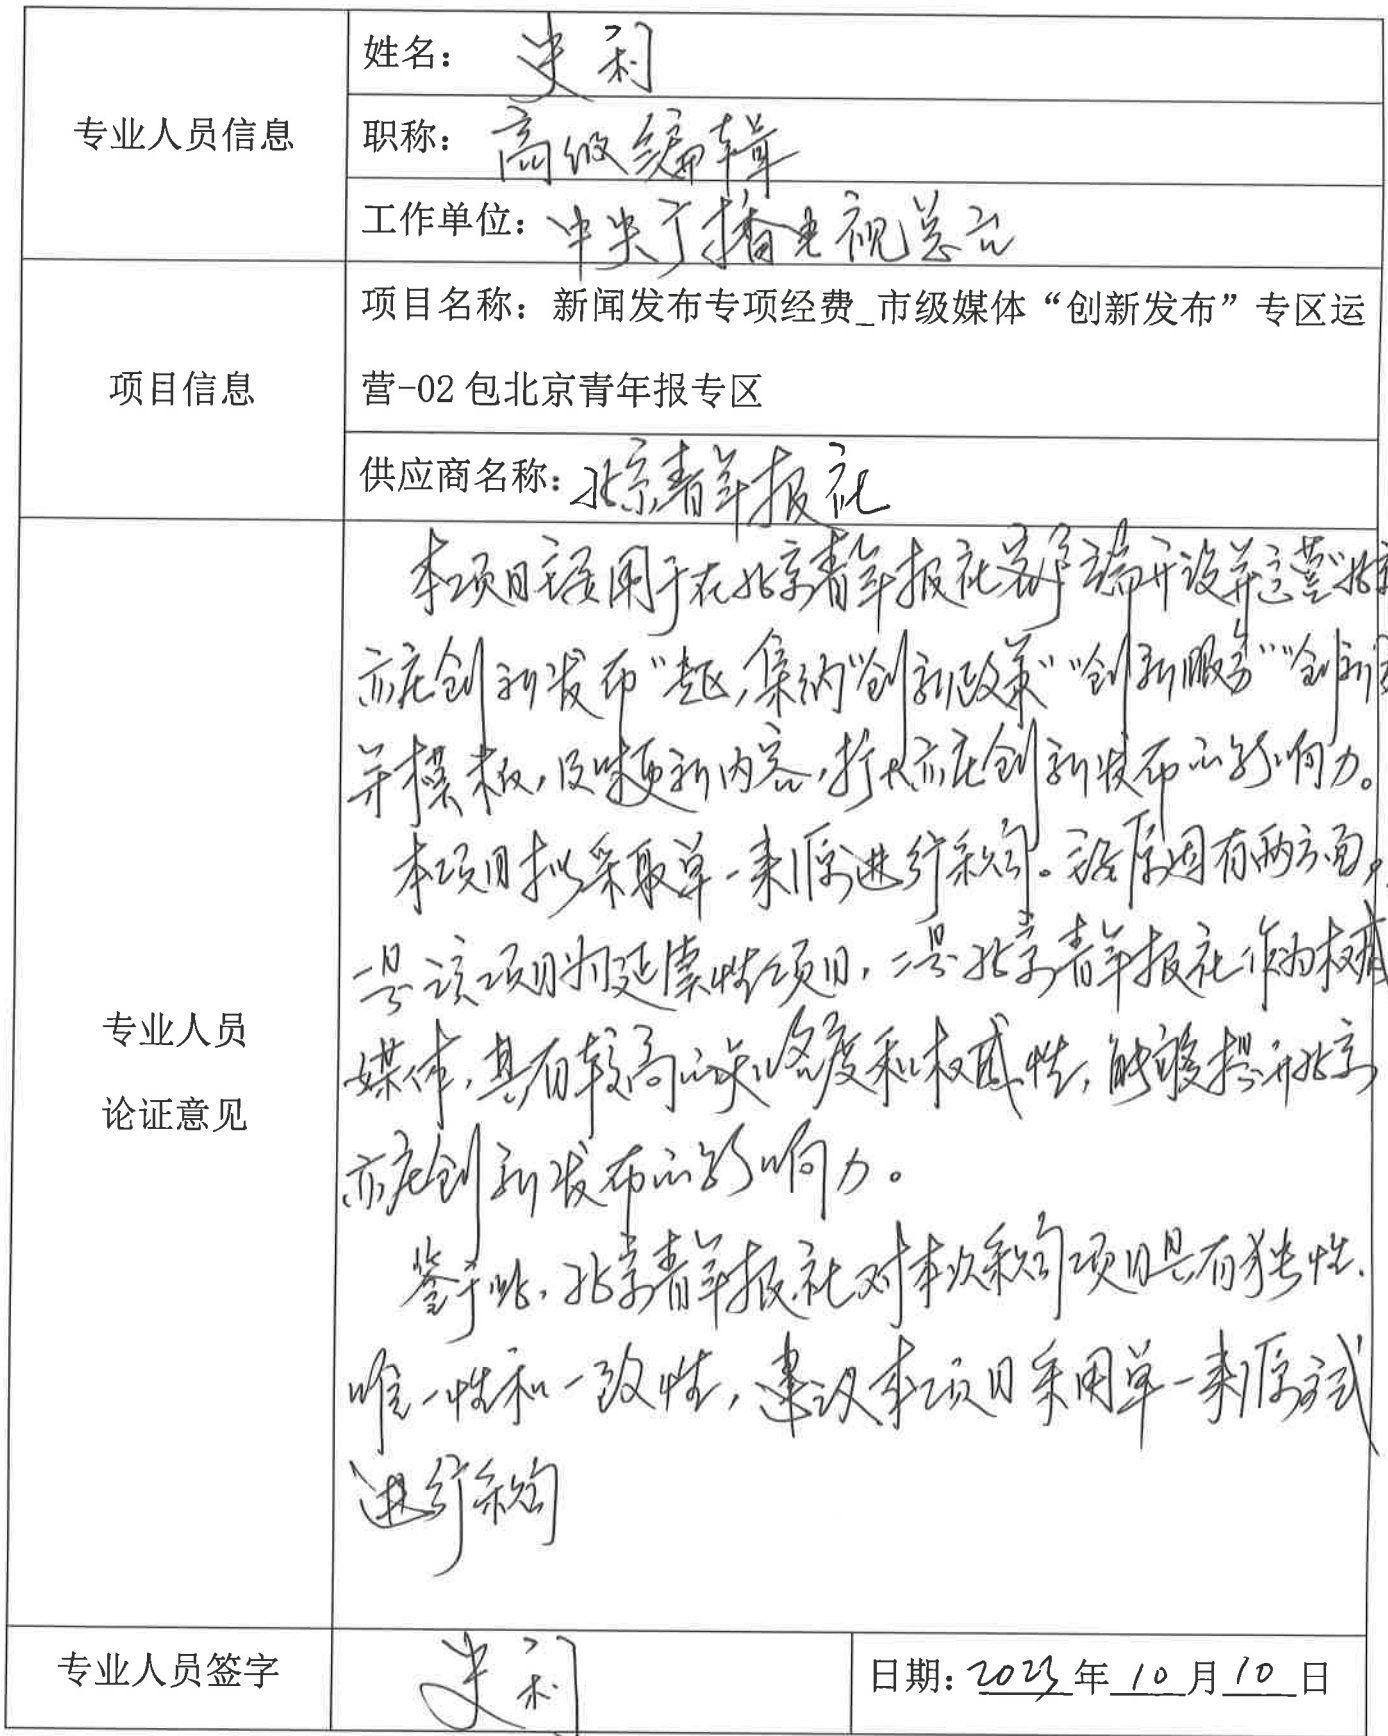 专业人员信息
姓名：史利
职称：高级编辑
工作单位：中央广播电视总台
项目信息
项目名称：新闻发布专项经费_市级媒体“创新发布”专区运
营-02包北京青年报专区
供应商名称：北京青年报社
专业人员
论证意见
本项目主要用于在北京青年报社客户端开设并运营“北京
亦庄创新发布”专区，集纳“创新政策”“创新服务”“创新
等模板，及时更新内容，扩大亦庄创新发布的影响力。
本项目拟采取单一来源进行采购。主要原因有两方面，
一是该项目为延续性项目，二是北京青年报社作为权威
媒体，具有较高的知名度和权威性，能够提升北京
亦庄创新发布的影响力。
鉴于此，北京青年报社对本次采购项目具有独特性、
唯一性和一致性，建议本项目采用单一来源方式
进行采购
专业人员签字
史利
日期：2023年10月10日